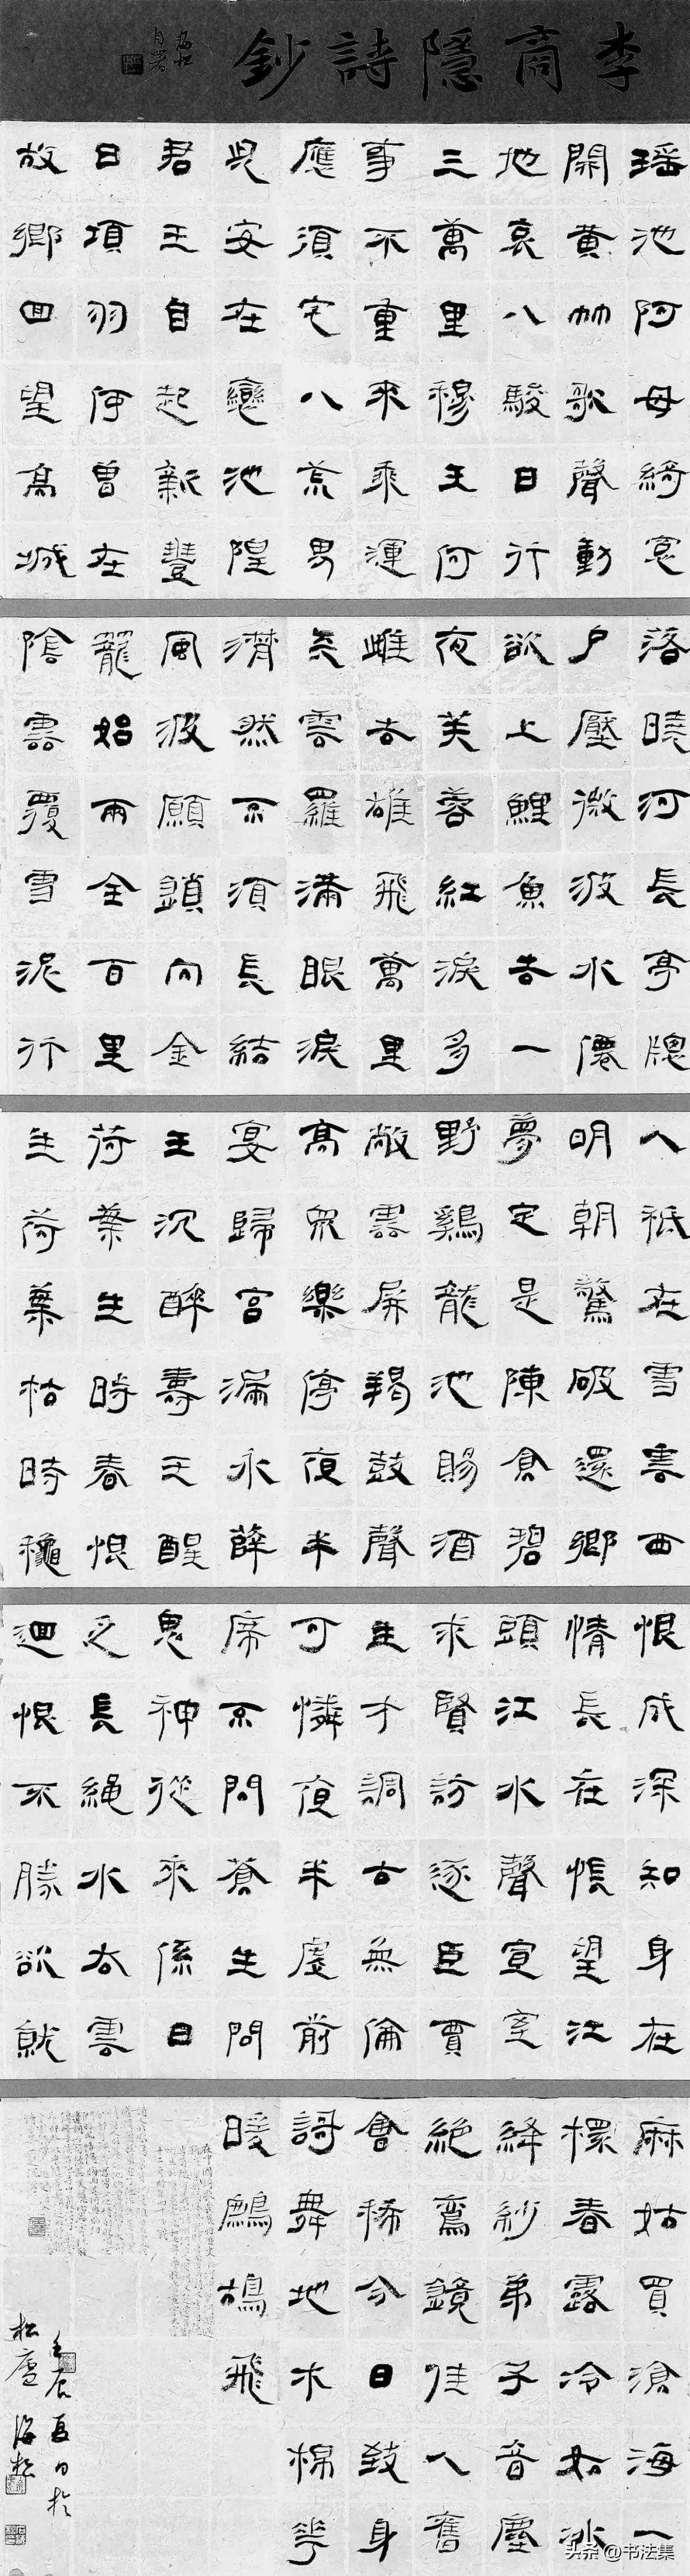 李商隱詩鈔
瑶池阿母綺窓
開黄竹歌聲動
地哀八駿日行
三萬里穆王何
事不重來乘運
應須宅八荒男
兒安在戀池隍
君王自起新豐
日項羽何曾在
故鄉回望高城
落曉河長亭牕
户壓微波水僊
欲上鯉魚去一
夜芙蓉紅淚多
雌去雄飛萬里
天雲羅滿眼淚
潸然不須長結
風波願鎖向金
籠始兩全百里
陰雲覆雪泥行
人祗在雪雲西
明朝驚破還鄉
夢定是陳倉碧
野鷄龍池賜酒
敞雲屏羯鼓聲
高衆樂停夜半
宴歸宫漏水薛
王沉醉壽王醒
荷葉生時春恨
生荷葉枯時穐
恨成深知身在
情長在悵望江
頭江水聲宣室
求賢訪逐臣賈
生才調古無倫
可憐夜半虚前
席不問蒼生問
鬼神從來係日
乏長繩水去雲
迴恨不勝欲就
麻姑買滄海一
桮春露冷如冰
絳紗弟子音塵
絶鸞鏡佳人舊
會稀今日致身
謌舞地木棉花
暖鷓鴣飛
壬辰夏日於
松廬海松
头条 @书法集